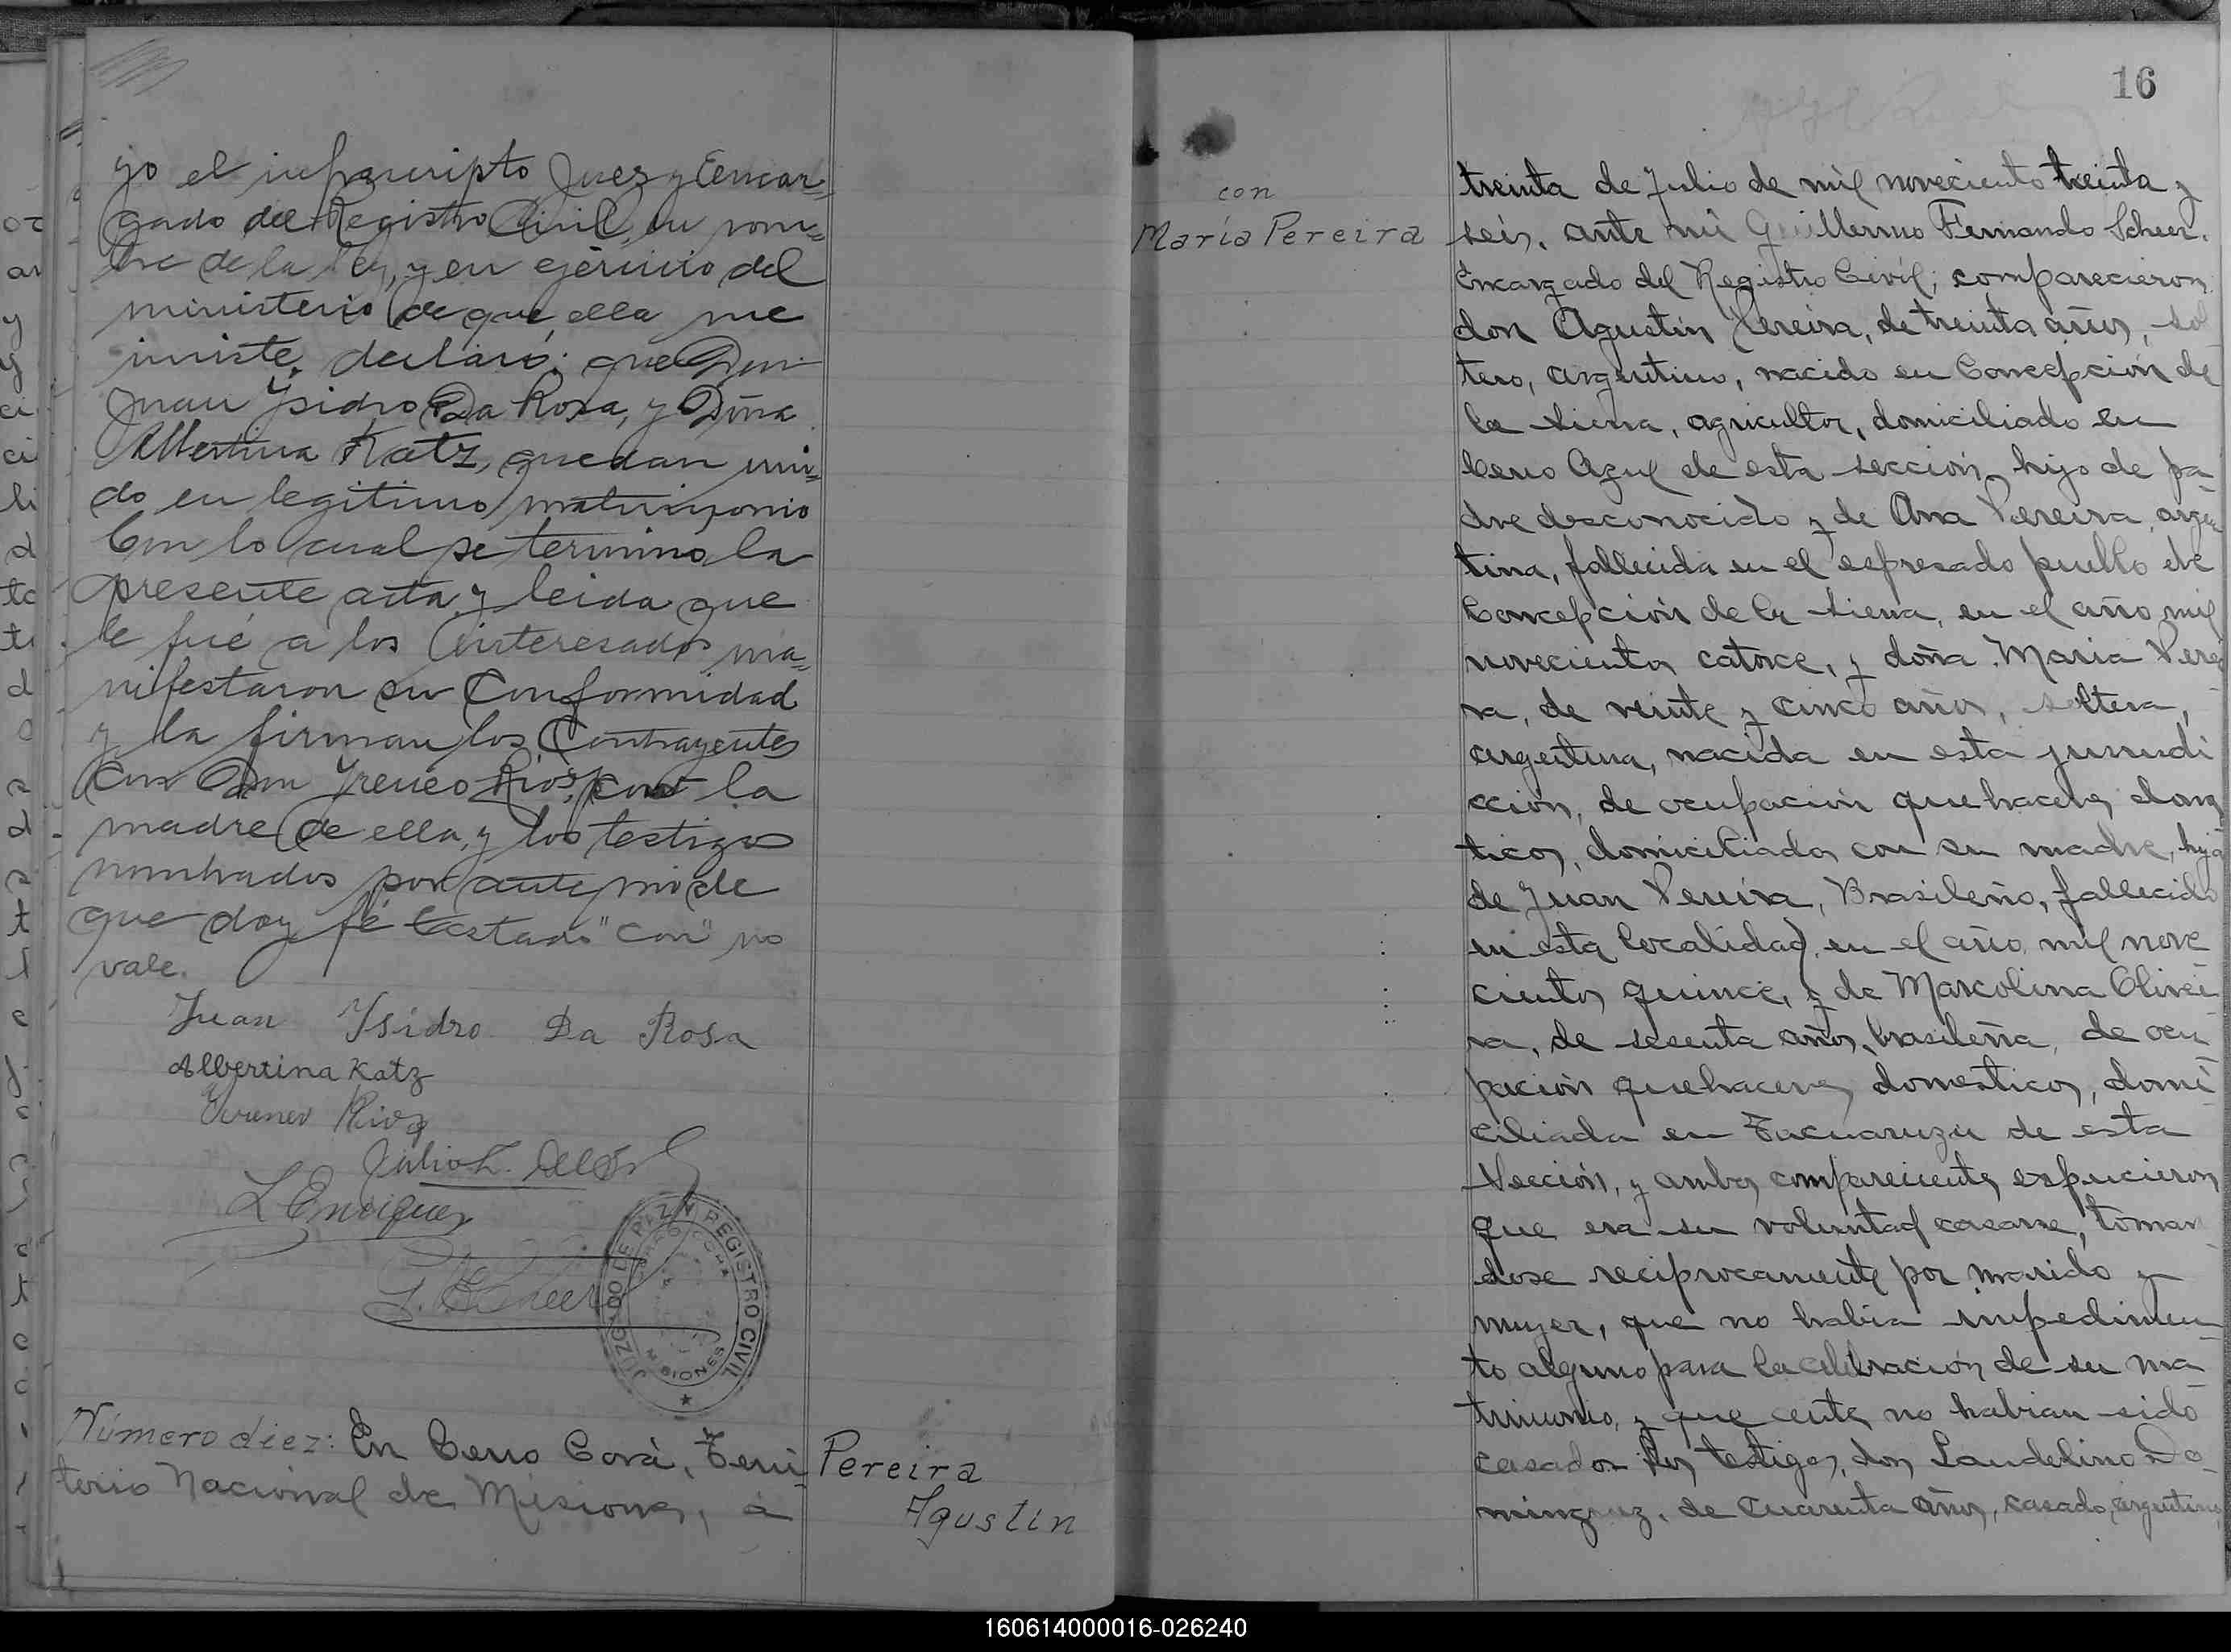 yo el infrascripto Juez y Encar=
gado del Registro Civil, en nom=
bre de la Ley, y en ejercicio del
ministerio de que ella me
inviste, declaró: que Don
Juan Ysidro Da Rosa, y Doña
Albertina Katz, quedan uni=
do en legitimo matrimonio
Con lo cual se terminó la
presente acta y leida que
le fué a los interesados ma=
nifestaron su Conformidad
y la firman los Contrayentes
con Don Yreneo Rios, con la
madre de ella, y los testigos
nombrados por ante mi de
que doy fé testado "con" no
vale.
Juan Ysidro Da Rosa
Albertina Katz
Yreneo Rios
Julio L.
L Enriquez
G. F. Scheer
JUZGADO DE PAZ Y REGISTRO CIVIL
MISIONES
Número diez: En Cerro Corá, Terri-
torio Nacional de Misiones, á
Pereira
Agustin
16
con
María Pereira
treinta de Julio de mil noveciento treinta y
seis, ante mi Guillermo Fernando Scheer,
Encargado del Registro Civil; comparecieron
don Agustin Pereira, de treinta años, sol
tero, argentino, nacido en Concepción de
la Sierra, agricultor, domiciliado en
Cerro Azul de esta sección, hijo de pa-
dre desconocido y de Ana Pereira, argen
tina, fallecida en el espresado pueblo de
Concepción de la Sierra, en el año mil
novecientos catorce, y doña Maria Perei
ra, de veinte y cinco años, soltera,
argentina, nacida en esta jurisdi
cción, de ocupación quehaceres domés
ticos, domiciliada con su madre, hija
de Juan Pereira, Brasileño, fallecido
en esta localidad, en el año mil nove
cientos quince, y de Marcolina Olivei
ra, de sesenta años, brasileña, de ocu
pación quehaceres domesticos, domi-
ciliada en Tacuaruzu de esta
Sección, y ambos comparecientes espucieron
que era su voluntad casarse, toman
dose reciprocamente por marido y
mujer, que no habia impedimen
to alguno para la celebración de su ma
trimonio, y que antes no habian sido
casados. Los testigos, don Laudelino Do-
minguez, de cuarenta años, casado, argentino,